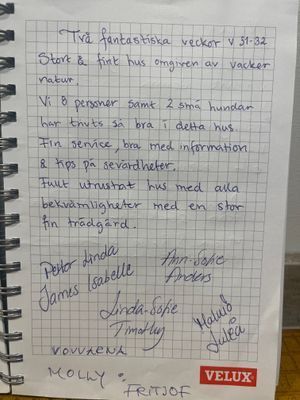 Två fantastiska veckor v 31-32
Stort & fint hus omgiven av vacker
natur.
Vi 8 personer samt 2 små hundar
har trivts så bra i detta hus.
Fin service, bra med information
& tips på sevärdheter.
Fullt utrustat hus med alla
bekvämligheter med en stor
fin trädgård.
Peter Linda Ann-Sofie
James Isabelle Anders
Linda-Sofie
Timothy
Malmö
Luleå
VOVVARNA
MOLLY
FRITJOF
VELUX